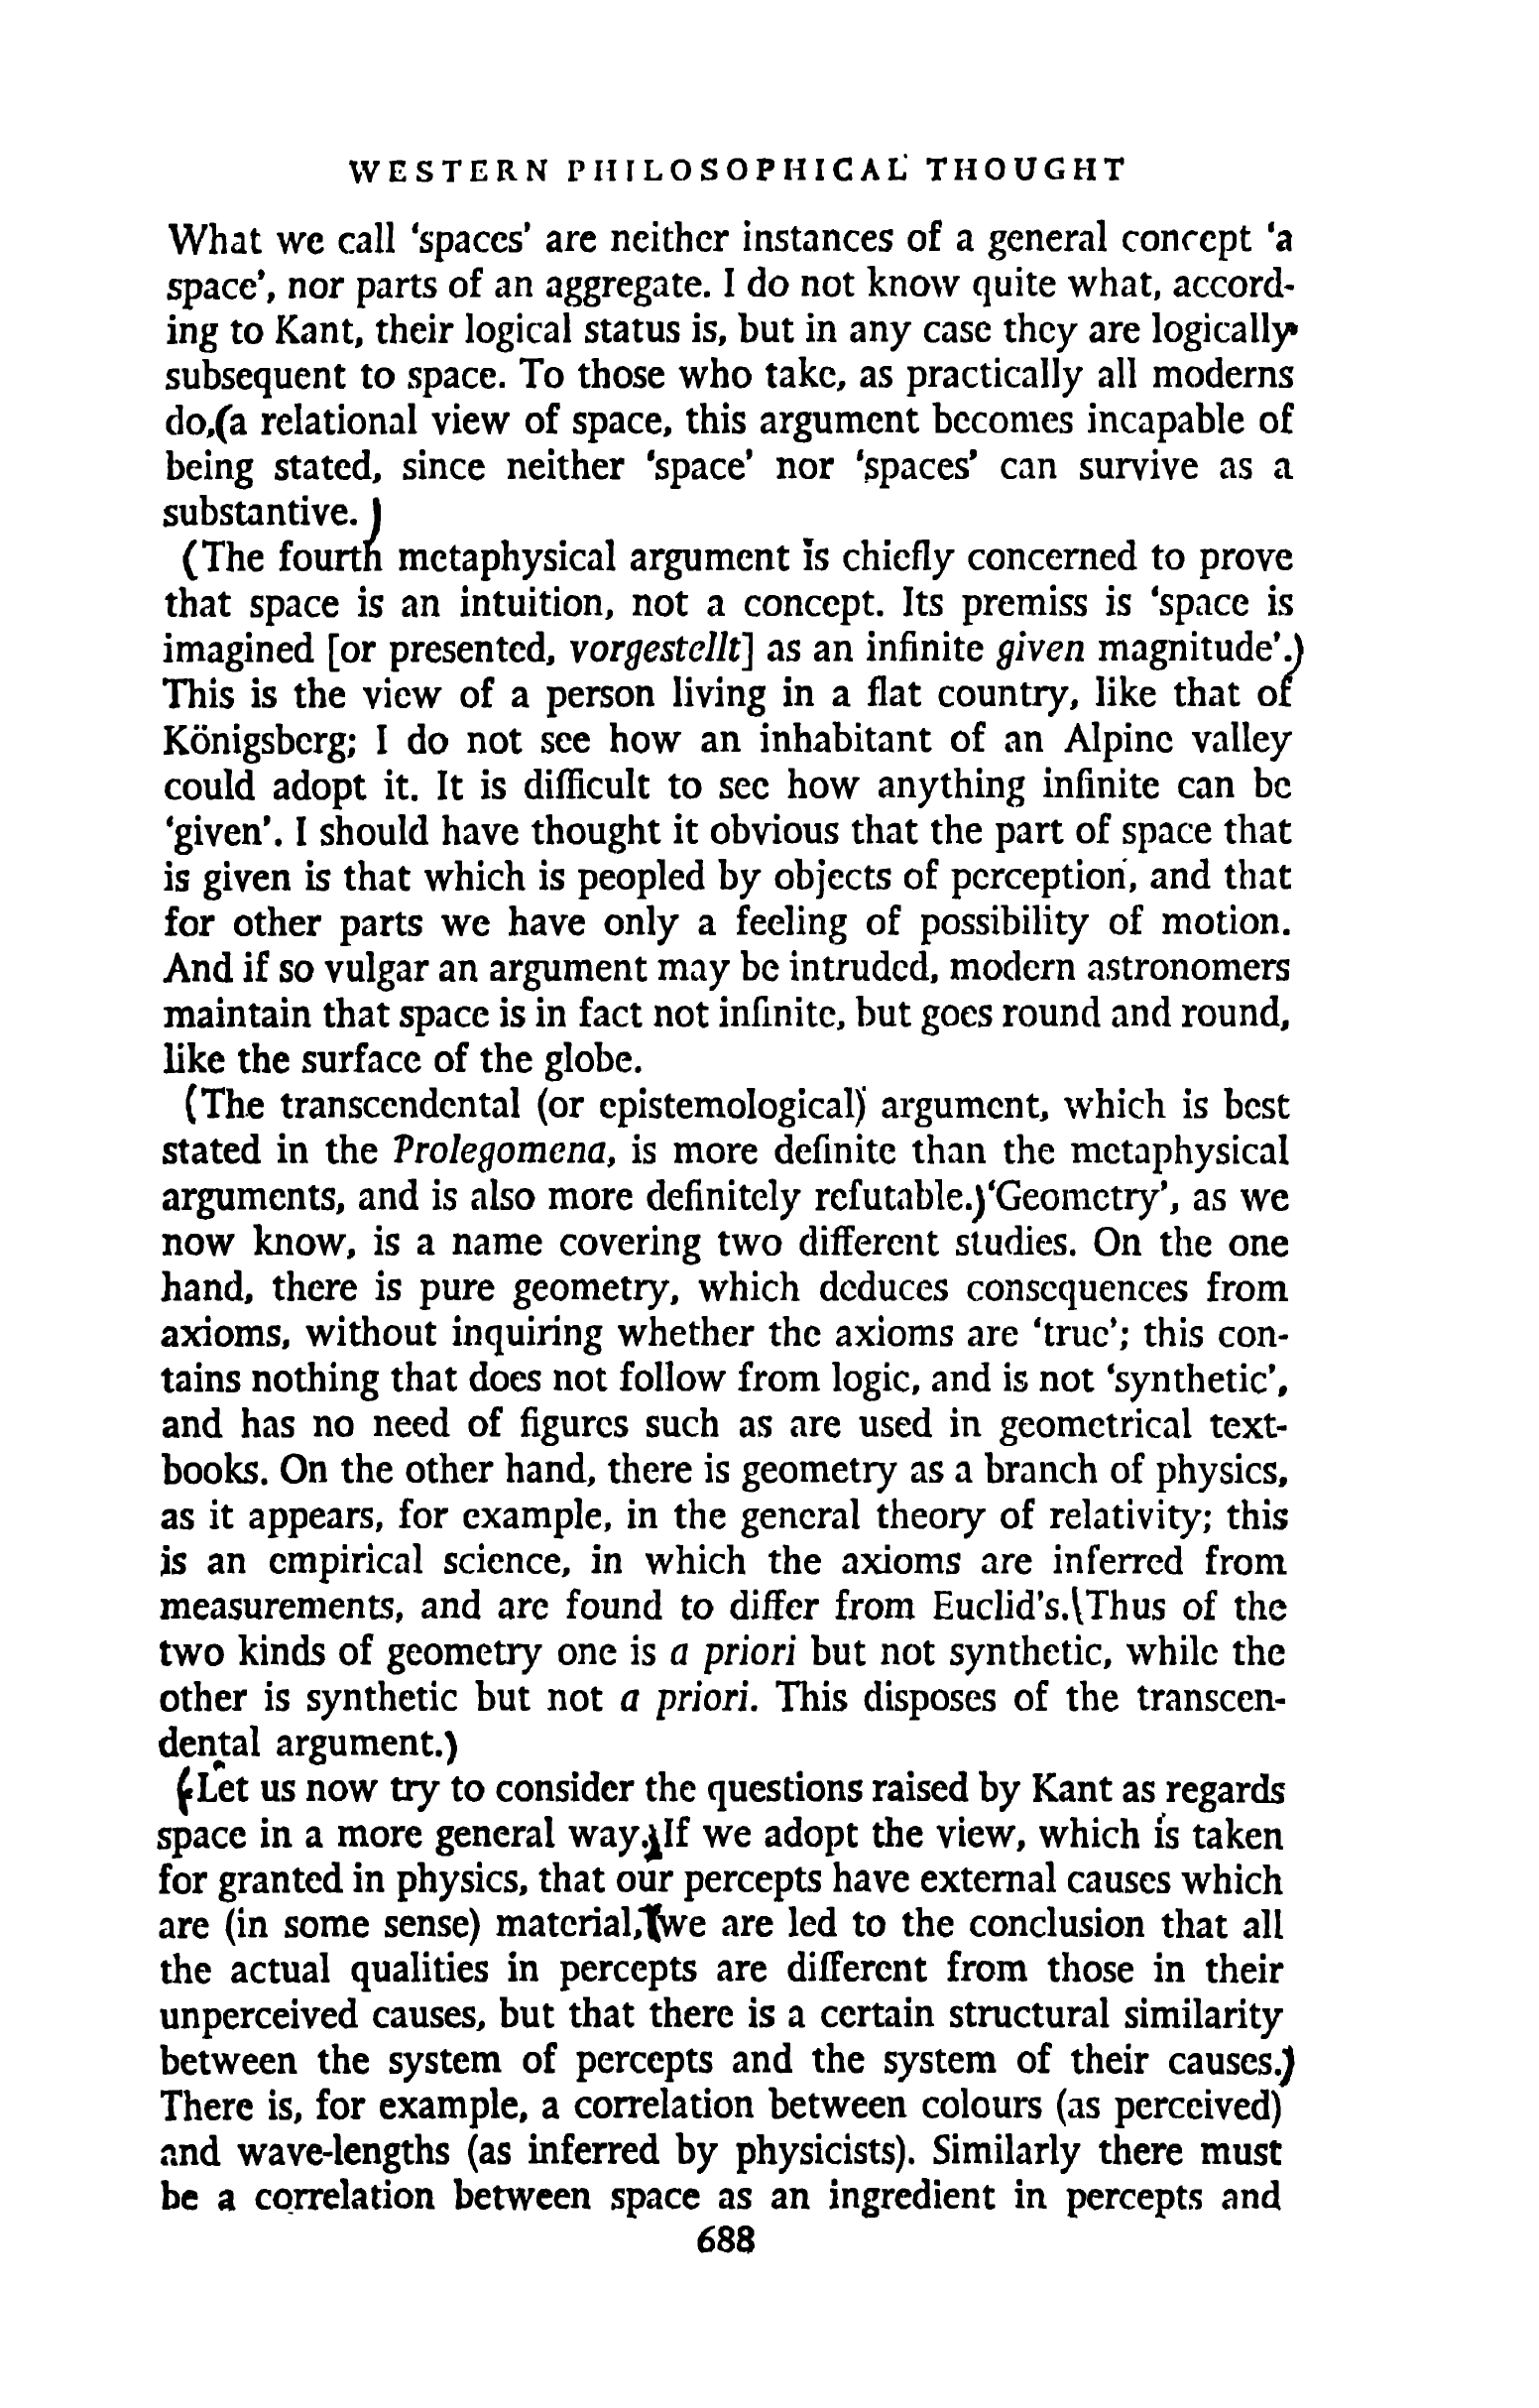 WESTERN PHILOSOPHICAL THOUGHT
What we call 'spaces' are neither instances of a general concept 'a
space', nor parts of an aggregate. I do not know quite what, accord-
ing to Kant, their logical status is, but in any case they are logically
subsequent to space. To those who take, as practically all moderns
do,(a relational view of space, this argument becomes incapable of
being stated, since neither 'space' nor 'spaces' can survive as a
substantive.)
(The fourth metaphysical argument is chiefly concerned to prove
that space is an intuition, not a concept. Its premiss is 'space is
imagined [or presented, vorgestellt] as an infinite given magnitude'.)
This is the view of a person living in a flat country, like that of
Königsberg; I do not see how an inhabitant of an Alpine valley
could adopt it. It is difficult to see how anything infinite can be
'given'. I should have thought it obvious that the part of space that
is given is that which is peopled by objects of perception, and that
for other parts we have only a feeling of possibility of motion.
And if so vulgar an argument may be intruded, modern astronomers
maintain that space is in fact not infinite, but goes round and round,
like the surface of the globe.
(The transcendental (or epistemological) argument, which is best
stated in the Prolegomena, is more definite than the metaphysical
arguments, and is also more definitely refutable.)'Geometry', as we
now know, is a name covering two different studies. On the one
hand, there is pure geometry, which deduces consequences from
axioms, without inquiring whether the axioms are 'true'; this con-
tains nothing that does not follow from logic, and is not 'synthetic',
and has no need of figures such as are used in geometrical text-
books. On the other hand, there is geometry as a branch of physics,
as it appears, for example, in the general theory of relativity; this
is an empirical science, in which the axioms are inferred from
measurements, and are found to differ from Euclid's.(Thus of the
two kinds of geometry one is a priori but not synthetic, while the
other is synthetic but not a priori. This disposes of the transcen-
dental argument.)
(Let us now try to consider the questions raised by Kant as regards
space in a more general way.)If we adopt the view, which is taken
for granted in physics, that our percepts have external causes which
are (in some sense) material,(we are led to the conclusion that all
the actual qualities in percepts are different from those in their
unperceived causes, but that there is a certain structural similarity
between the system of percepts and the system of their causes.)
There is, for example, a correlation between colours (as perceived)
and wave-lengths (as inferred by physicists). Similarly there must
be a correlation between space as an ingredient in percepts and
688